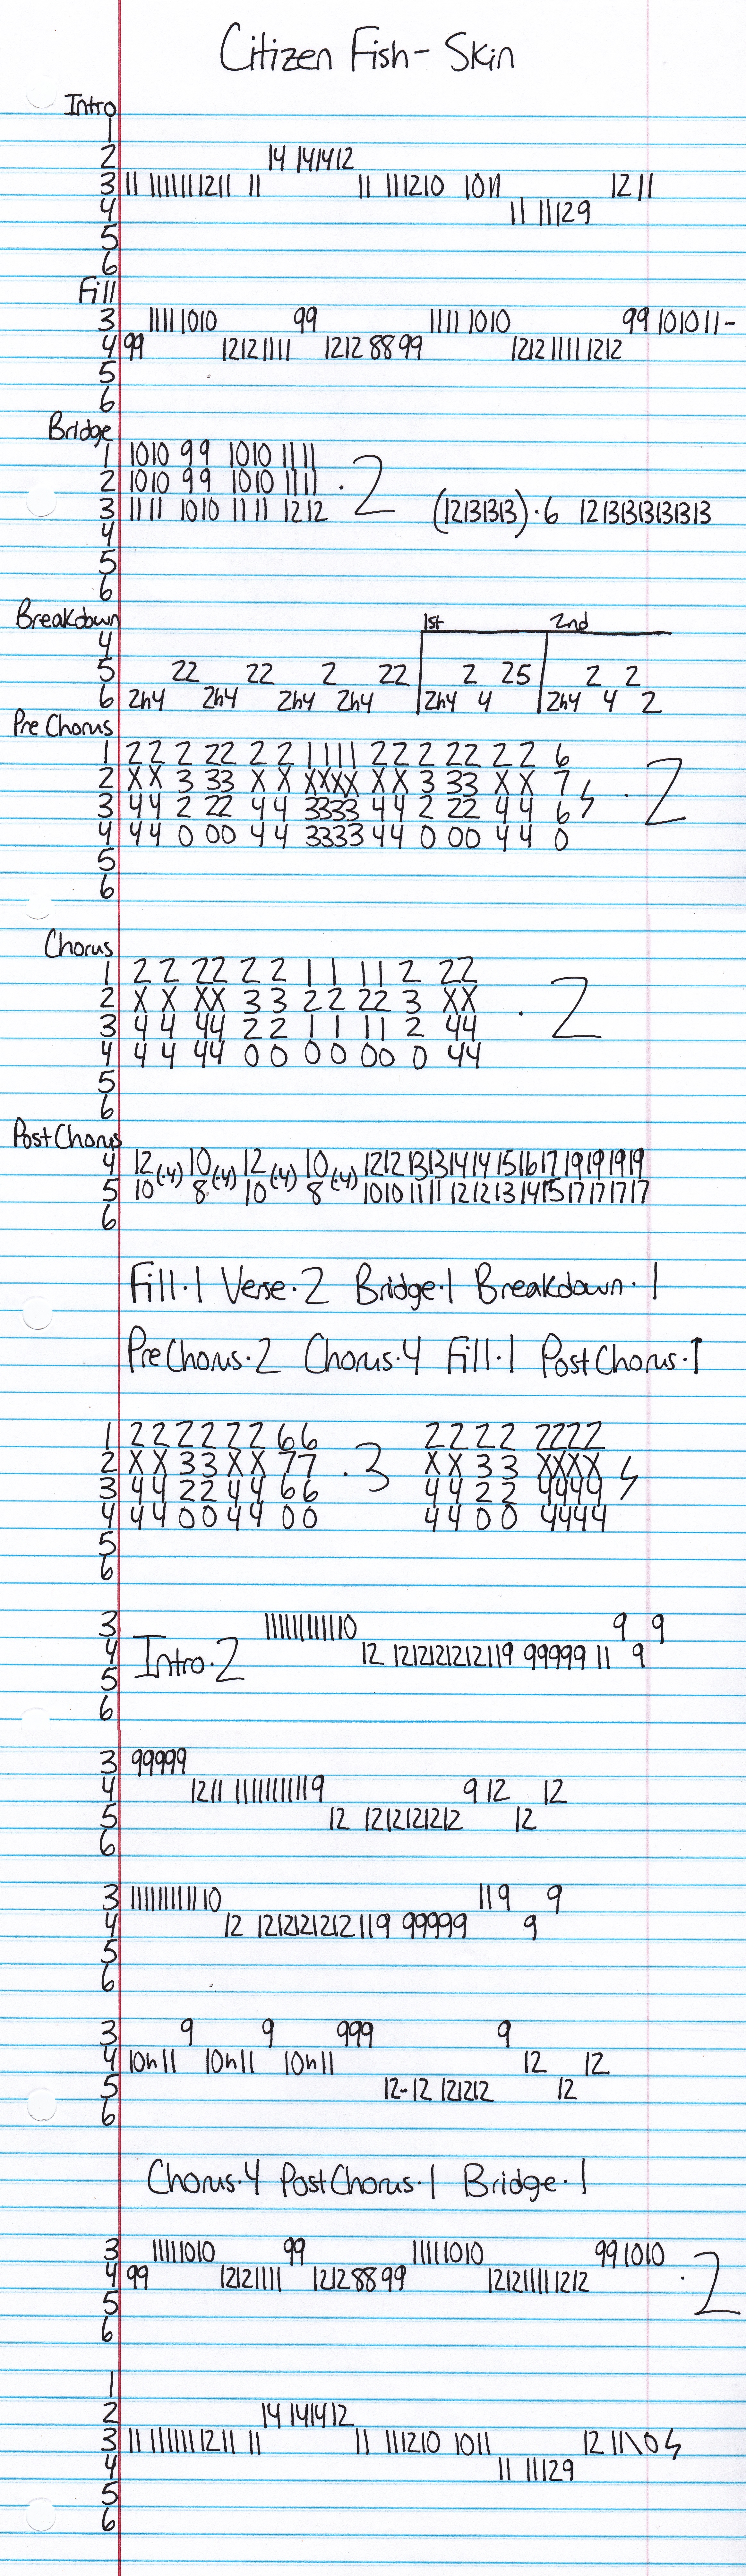 Citizen Fish - Skin
Intro
1
2 14 141412
3 11 11111111211 11 11 111210 1011 1211
4 11 11129
5
6
Fill
3 11111010 99 11111010 99 101011-
4 99 12121111 12128899 121211111212
5
6
Bridge
1 1010 99 1010 1111
2 1010 99 1010 1111 ·2
3 1111 1010 1111 1212 (12131313)·6 12131313131313
4
5
6
Breakdown 1st 2nd
4
5 22 22 2 22 2 25 2 2
6 2h4 2h4 2h4 2h4 2h4 4 2h4 4 2
Pre Chorus
1 2 2 2 22 2 2 1111 2 2 2 22 2 2 6
2 X X 3 33 X X XXXX X X 3 33 X X 7 ·2
3 4 4 2 22 4 4 3333 4 4 2 22 4 4 6
4 4 4 0 00 4 4 3333 4 4 0 00 4 4 0
5
6
Chorus
1 2 2 22 2 2 1 1 11 2 22
2 X X XX 3 3 2 2 22 3 XX ·2
3 4 4 44 2 2 1 1 11 2 44
4 4 4 44 0 0 0 0 00 0 44
5
6
Post Chorus
4 12(·4) 10(·4) 12(·4) 10(·4) 12121313141415161719191919
5 10 8 10 8 10101111121213141517171717
6
Fill·1 Verse·2 Bridge·1 Breakdown·1
PreChorus·2 Chorus·4 Fill·1 PostChorus·1
1 2 2 2 2 2 2 6 6 2 2 2 2 2222
2 X X 3 3 X X 7 7 ·3 X X 3 3 XXXX
3 4 4 2 2 4 4 6 6 4 4 2 2 4444
4 4 4 0 0 4 4 0 0 4 4 0 0 4444
5
6
3 111111111110 9 9
4 Intro·2 12 1212121212119 99999 11 9
5
6
3 99999
4 1211 11111111119 9 12 12
5 12 1212121212 12
6
3 111111111110 119 9
4 12 1212121212119 99999 9
5
6
3 9 9 999 9
4 10h11 10h11 10h11 12 12
5 12-12 121212 12
6
Chorus·4 PostChorus·1 Bridge·1
3 11111010 99 11111010 991010
4 99 12121111 12128899 121211111212 ·2
5
6
1
2 14 141412
3 11 11111111211 11 11 111210 1011 12 11110
4 11 11129
5
6